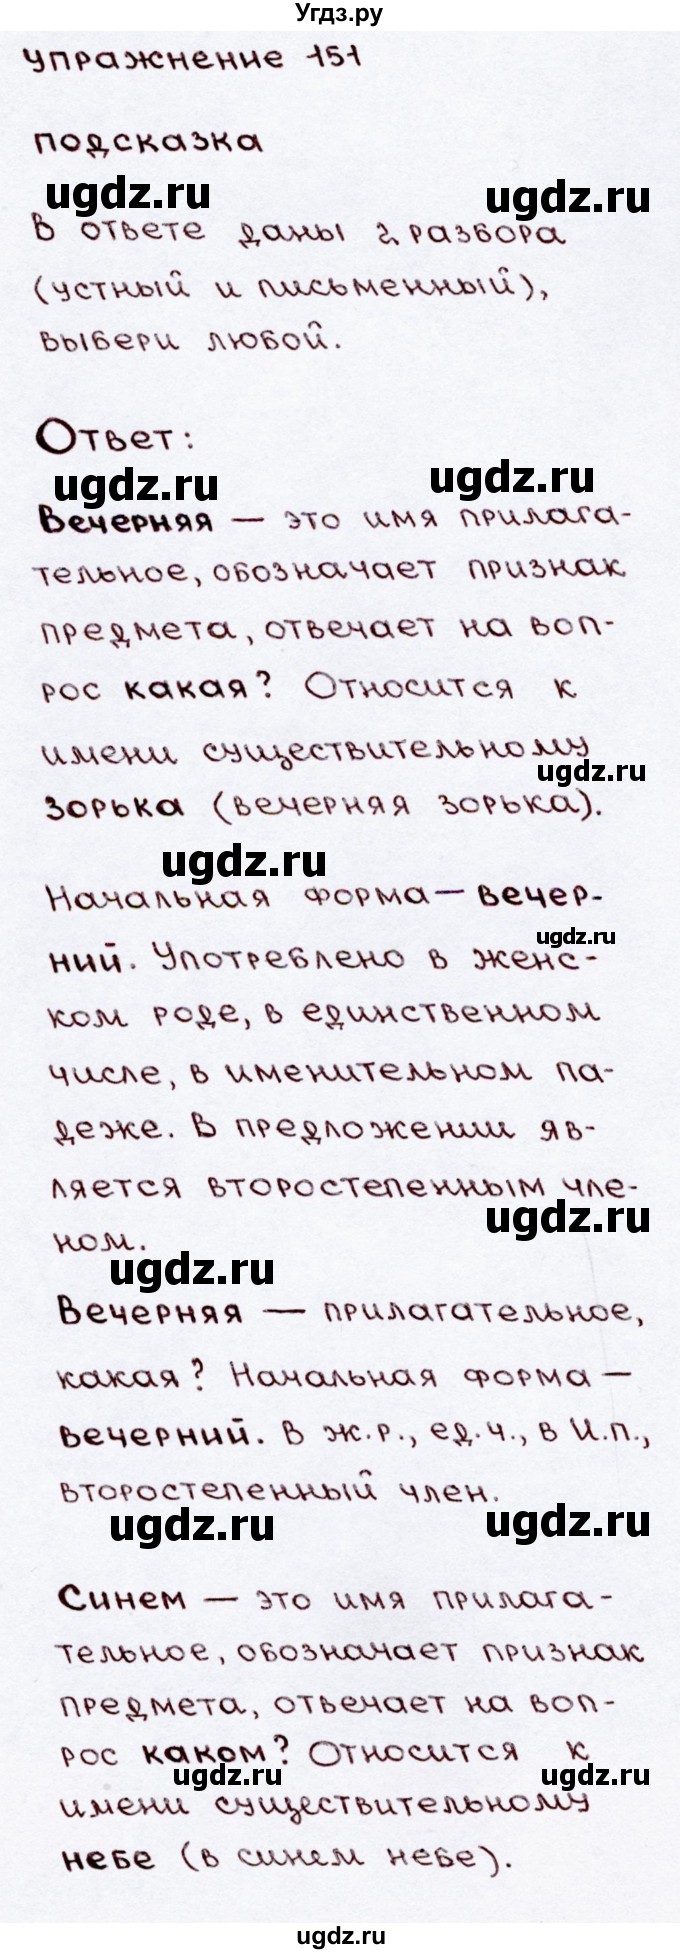 Угдз.ру
упражнение 151
подсказка
ugdz.ru ugdz.ru
В ответе даны 2 разбора
(устный и письменный),
выбери любой.
Ответ:
ugdz.ru ugdz.ru
Вечерняя — это имя прилага-
тельное, обозначает признак
предмета, отвечает на воп-
рос какая? Относится к
имени существительному
ugdz.ru
зорька (вечерняя зорька).
ugdz.ru
Начальная форма — вечер-
ugdz.ru
ний. Употреблено в женс-
ком роде, в единственном
числе, в именительном па-
деже. В предложении яв-
ляется второстепенным чле-
ugdz.ru
ном.
ugdz.ru
Вечерняя — прилагательное,
какая? Начальная форма —
вечерний. В ж.р., ед.ч., в И.п.,
второстепенный член.
ugdz.ru ugdz.ru
Синем — это имя прилага-
тельное, обозначает признак
предмета, отвечает на воп-
рос каком? Относится к
ugdz.ru ugdz.ru
имени существительному
небе (в синем небе).
ugdz.ru